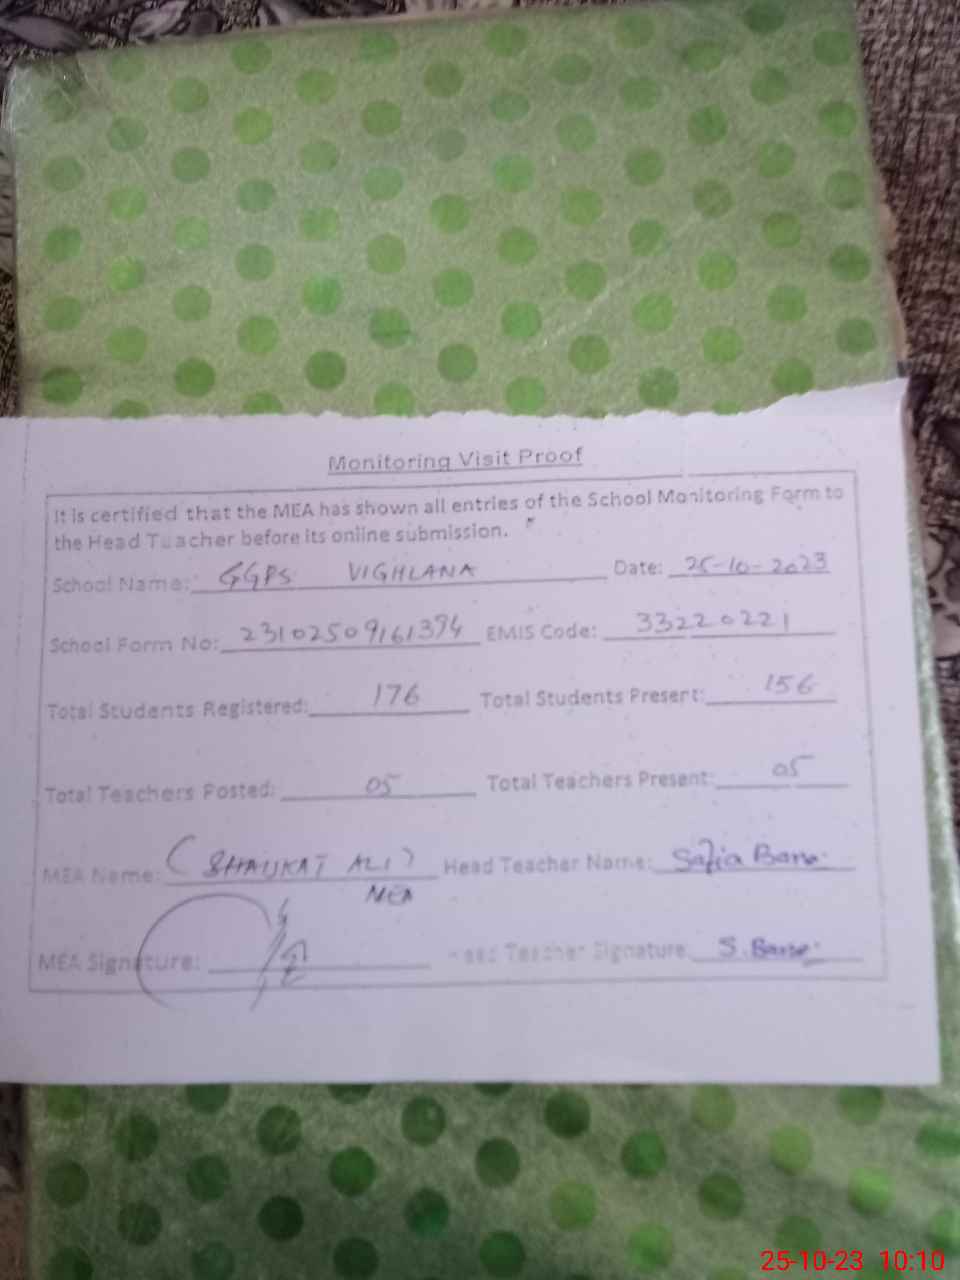 Monitoring Visit Proof
It is certified that the MEA has shown all entries of the School Monitoring Form to
the Head Teacher before its online submission.
School Name: GGPS VIGHLANA Date: 25-10-2023
School Form No: 23102509161394 EMIS Code: 33220221
Total Students Registered: 176 Total Students Present: 156
Total Teachers Posted: 05 Total Teachers Present: 05
MEA Name: (SHAUKAT ALI) Head Teacher Name: Safia Bano
MEA
MEA Signature: Head Teacher Signature: S. Bano
25-10-23 10:10